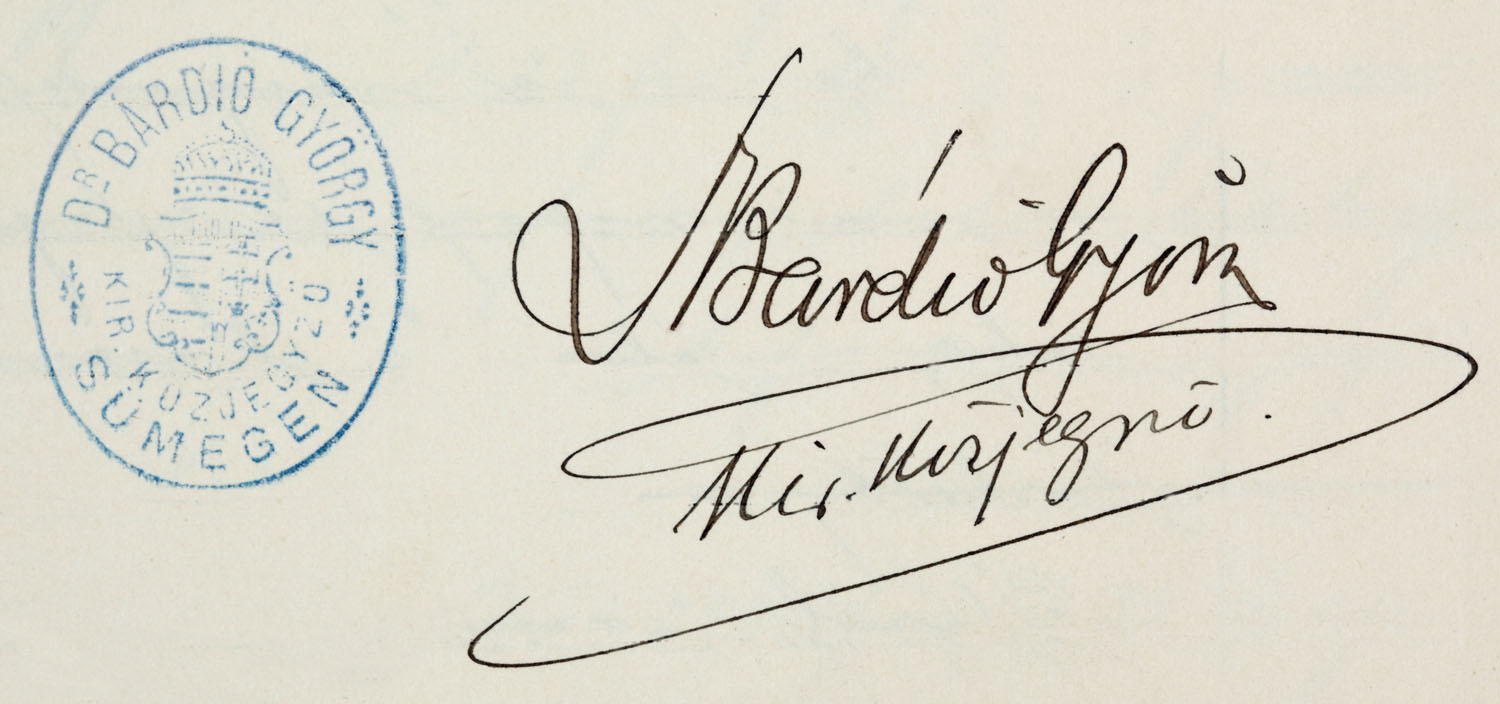 DR BÁRDIÓ GYÖRGY
KIR. KÖZJEGYZŐ
SÜMEGEN
Bárdió György
Kir. Közjegyző.